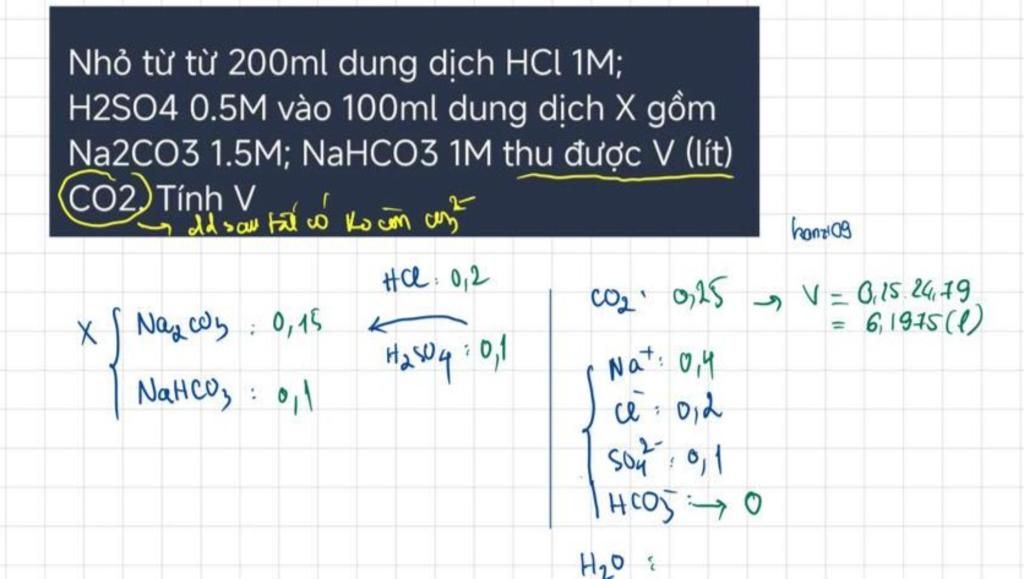 Nhỏ từ từ 200ml dung dịch HCl 1M;
H2SO4 0.5M vào 100ml dung dịch X gồm
Na2CO3 1.5M; NaHCO3 1M thu được V (lít)
CO2. Tính V
→ dd sau tất có ko còn CO3^2-
hanz109
HCl: 0,2
X { Na2CO3 : 0,15
H2SO4: 0,1
NaHCO3 : 0,1
CO2: 0,25 → V = 0,15.24,79
= 6,1975 (l)
Na+: 0,4
Cl-: 0,2
SO4^2-: 0,1
HCO3-: → 0
H2O :